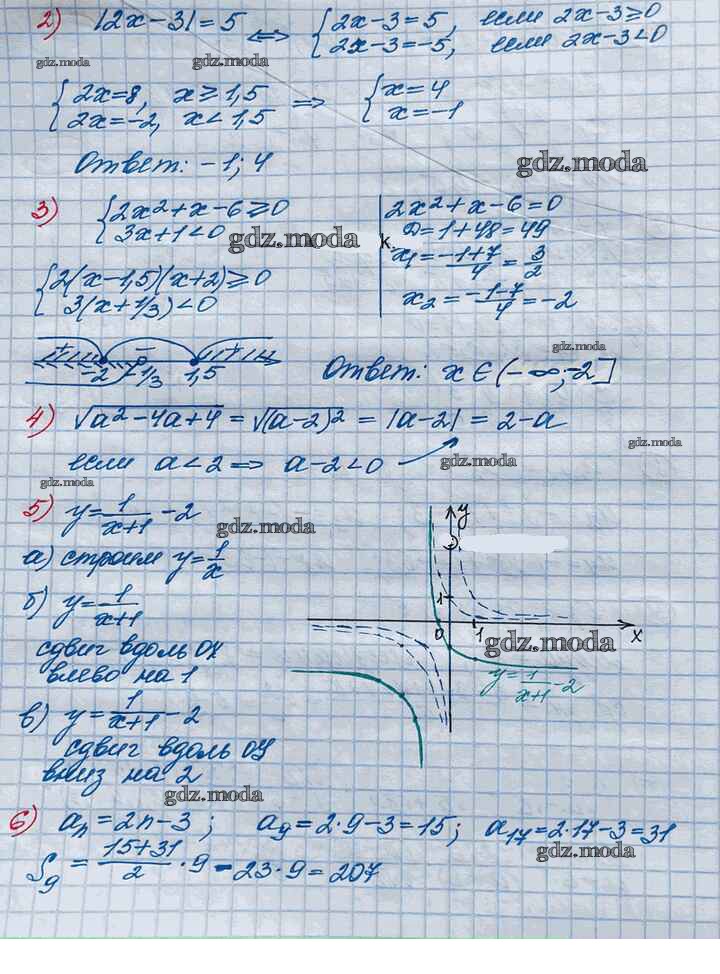 2) |2x-3|=5 ⟺ {2x-3=5, если 2x-3≥0
2x-3=-5, если 2x-3<0
gdz.moda gdz.moda
{2x=8, x≥1,5 ⟹ {x=4
2x=-2, x<1,5 x=-1
Ответ: -1; 4
gdz.moda
3) {2x²+x-6≥0
3x+1<0
gdz.moda k.
{2(x-1,5)(x+2)≥0
3(x+1/3)<0
2x²+x-6=0
D=1+48=49
x₁=(-1+7)/4=3/2
x₂=(-1-7)/4=-2
+ - +
-2 -1/3 1,5
gdz.moda
Ответ: x∈(-∞;-2]
4) √(a²-4a+4) = √((a-2)²) = |a-2| = 2-a
если a<2 ⟹ a-2<0
gdz.moda
gdz.moda gdz.moda
5) y=1/(x+1) -2
gdz.moda
а) строим y=1/x
б) y=1/(x+1)
сдвиг вдоль OX
влево на 1
в) y=1/(x+1) -2
сдвиг вдоль OY
вниз на 2
y
1
0 1 x
gdz.moda
y=1/(x+1) -2
gdz.moda
6) aₙ=2n-3; a₉=2·9-3=15; a₁₇=2·17-3=31
gdz.moda
S₉=(15+31)/2·9=23·9=207